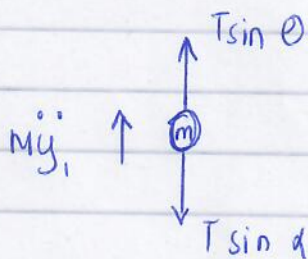 T sin Θ
mÿ₁
m
T sin α